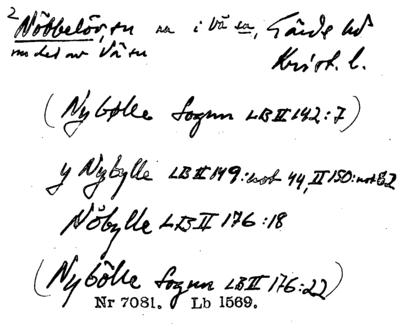 2 Nöbbelöv, sn sn i Vä sn, Gärds hd
nu del av Vä sn Krist. l.
(Nybølle Sognn LB II 142:7)
y Nybylle LB II 149: not 44, II 150: not 82
Nöbylle LB II 176:18
(Nybölle Sognn LB II 176:22)
Nr 7081. Lb 1569.